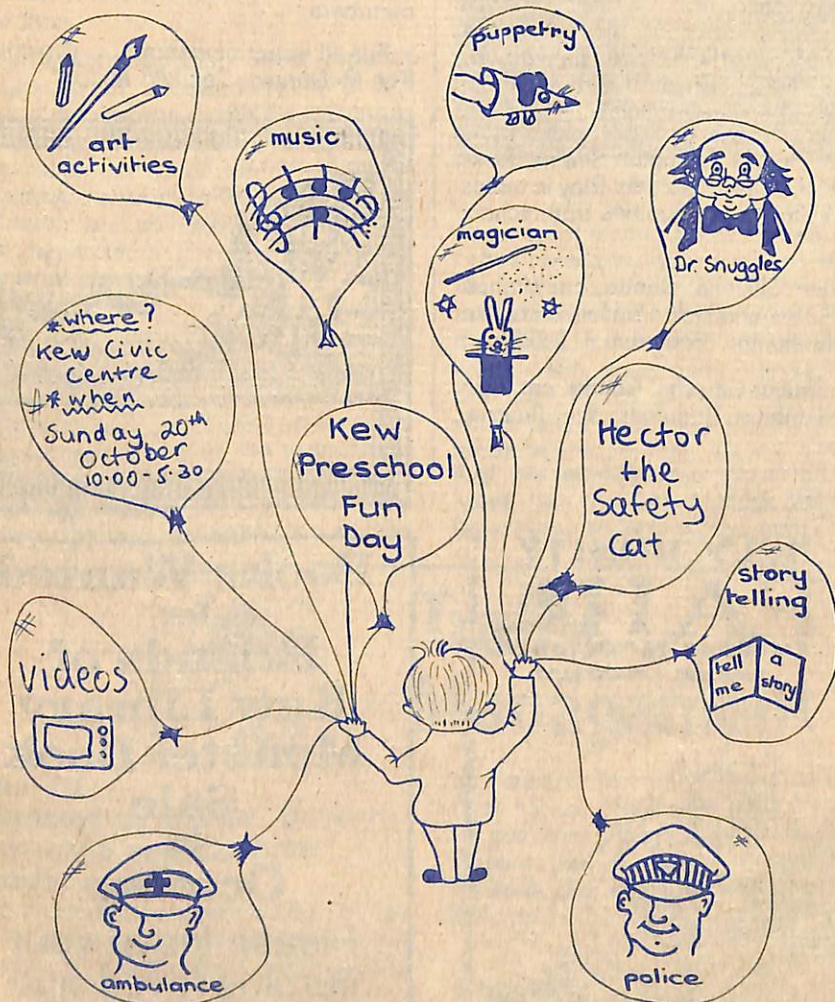 puppetry
art
activities
music
magician
Dr. Snuggles
*where?
Kew Civic
Centre
*when
Sunday 20th
October
10.00-5.30
Kew
Preschool
Fun
Day
Hector
the
Safety
Cat
story
telling
tell
me
a
story
videos
ambulance
police